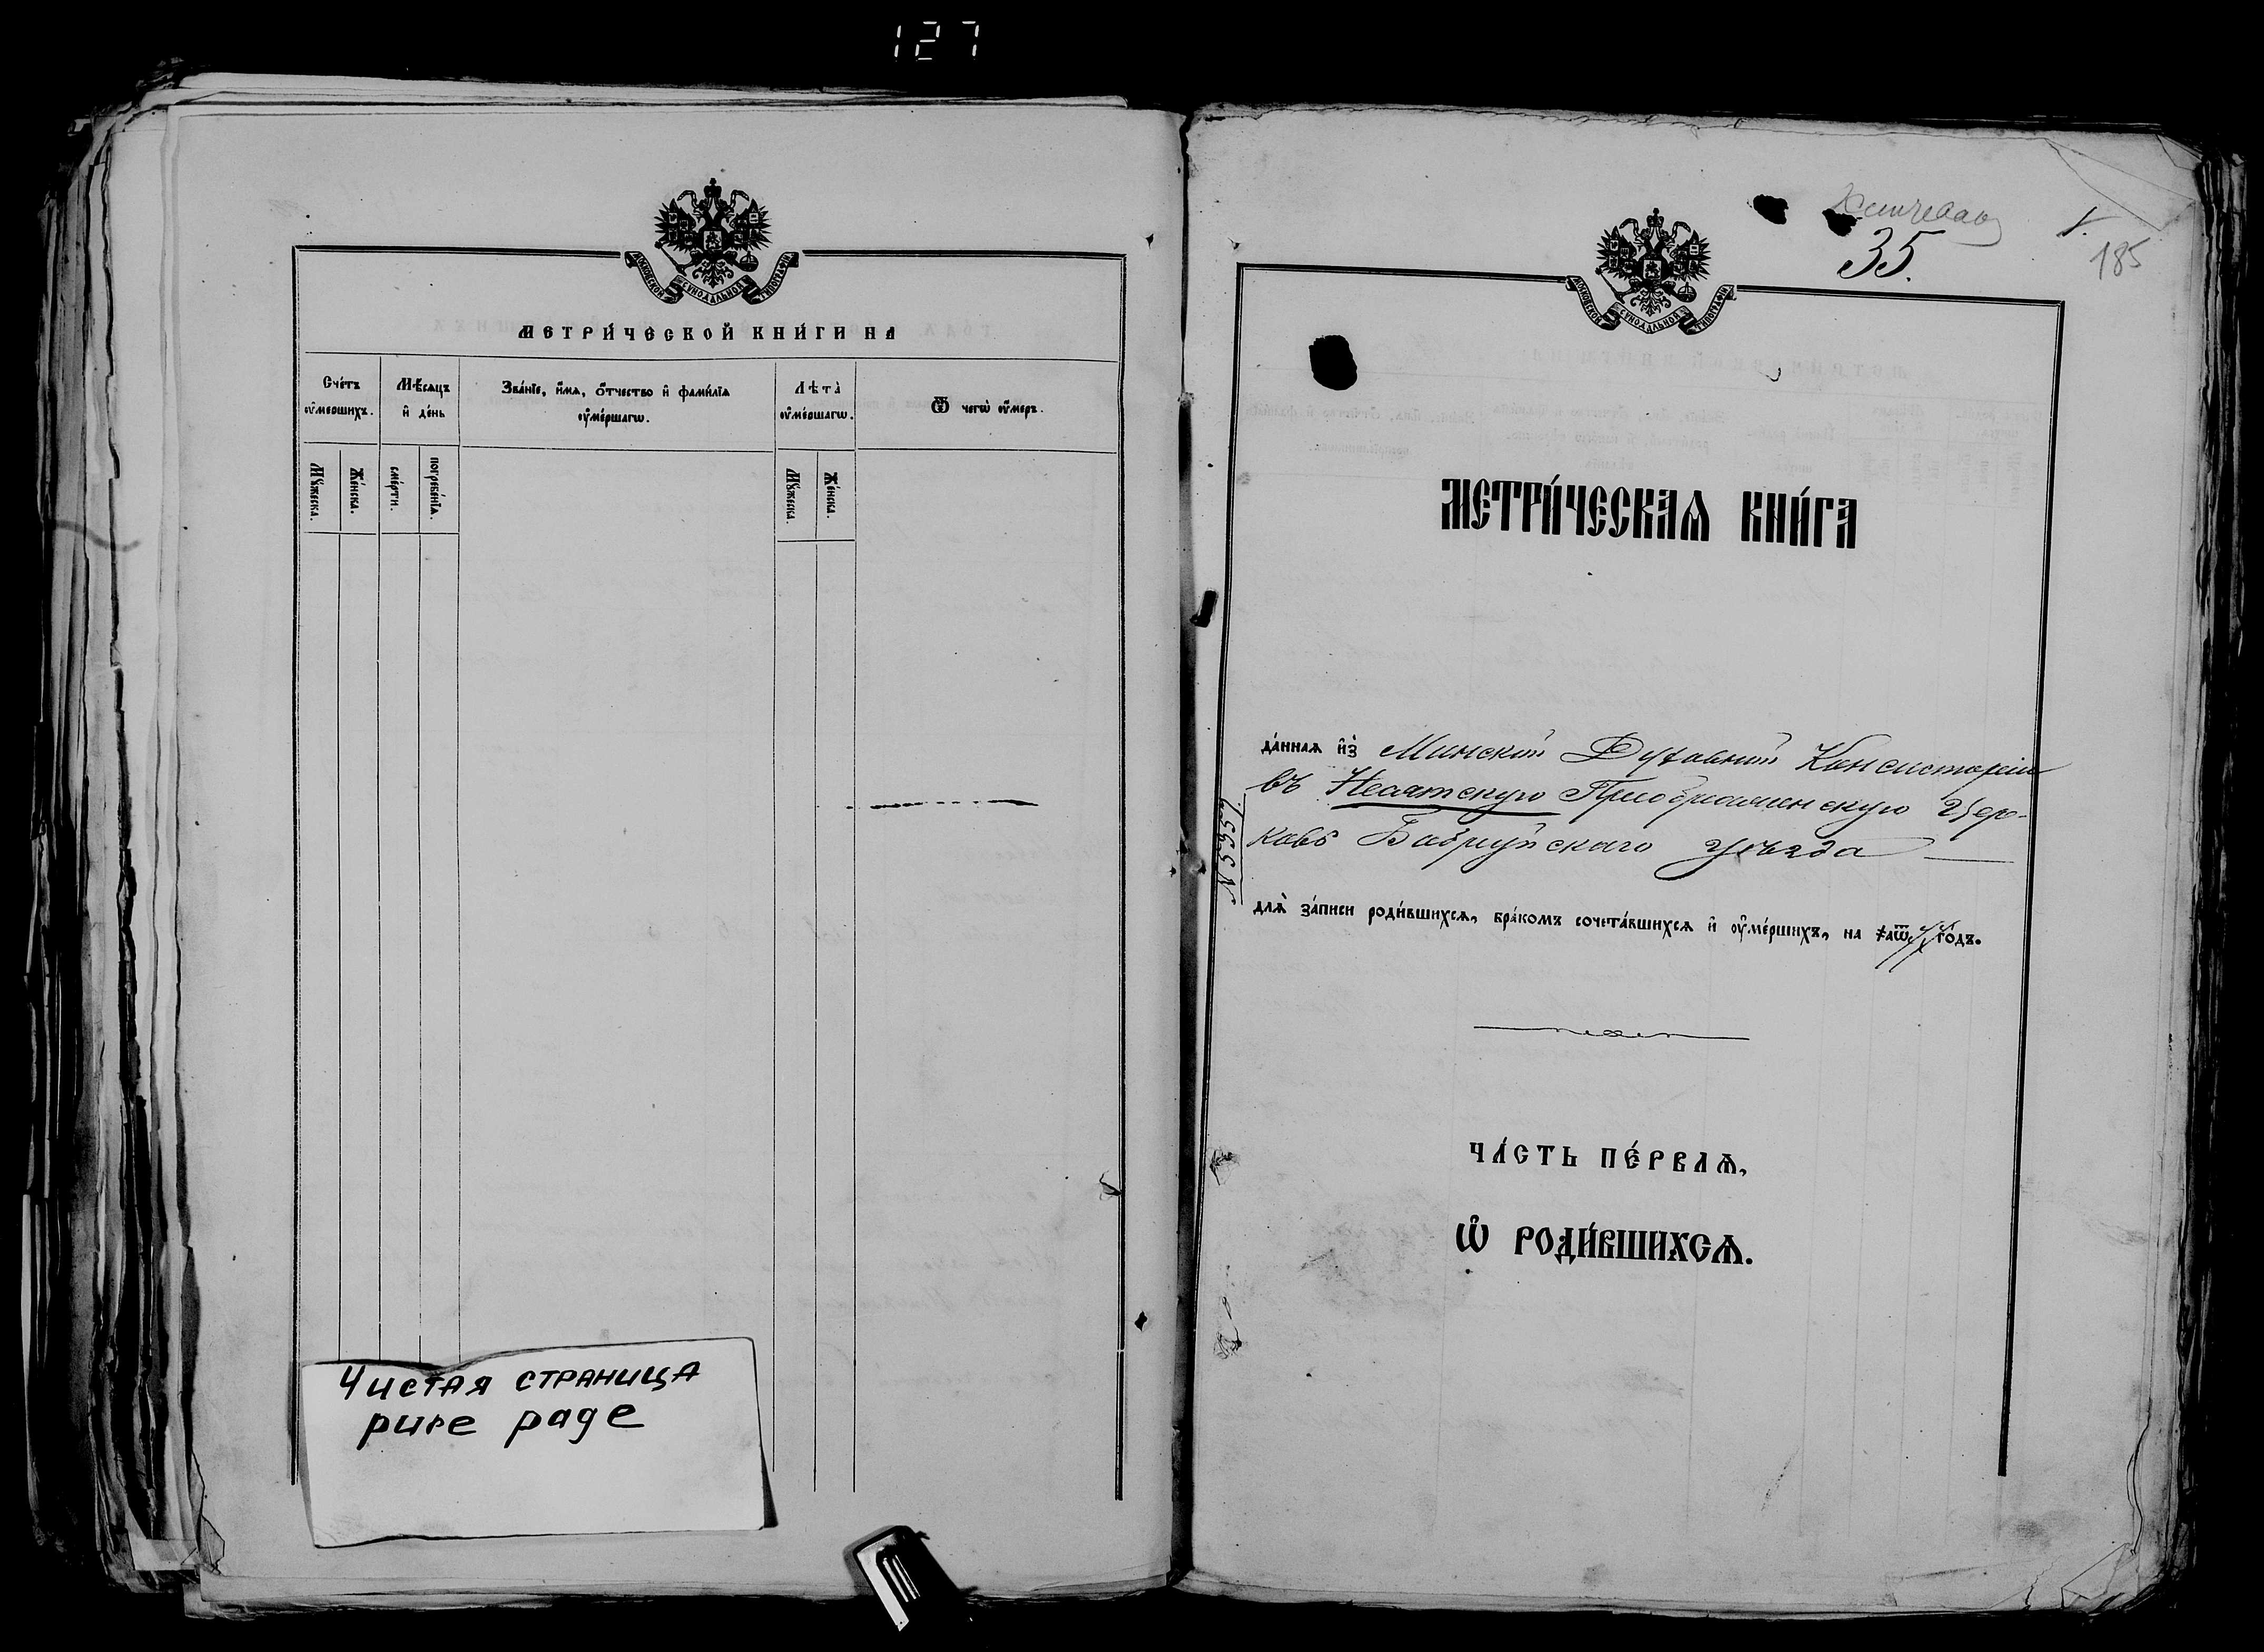 127
МОСКОВСКОЙ СѴНОДАЛЬНОЙ ТИПОГРАФІИ
МЕТРИ́ЧЕСКОЙ КНИ́ГИ НА
Сче́тъ ᲂу҆ме́ршихъ.
Мѣ́сяцъ и҆ де́нь
Зва́нїе, и҆́мѧ, ѻ҆́тчество и҆ фами́лїѧ ᲂу҆ме́ршагѡ.
Лѣта̀ ᲂу҆ме́ршагѡ.
Ѿ чегѡ̀ ᲂу҆́меръ.
Мꙋ́жеска.
Же́нска.
сме́рти.
погребе́нїѧ.
Мꙋ́жеска.
Же́нска.
Чистая страница
pure page
35.
185
МОСКОВСКОЙ СѴНОДАЛЬНОЙ ТИПОГРАФІИ
МЕТРИ́ЧЕСКАѦ КНИ́ГА
да́ннаѧ и҆з̾ Минской Духовной Консисторіи
въ Несятскую Преображенскую Цер-
ковь Бобруйскаго уѣзда
№ 5357
длѧ̀ за́писи роди́вшихсѧ, бра́комъ сочета́вшихсѧ и҆ ᲂу҆ме́ршихъ, на ҂аѿ го́дъ.
ЧА́СТЬ ПЕ́РВАѦ,
Ѡ҆ РОДИ́ВШИХСѦ.